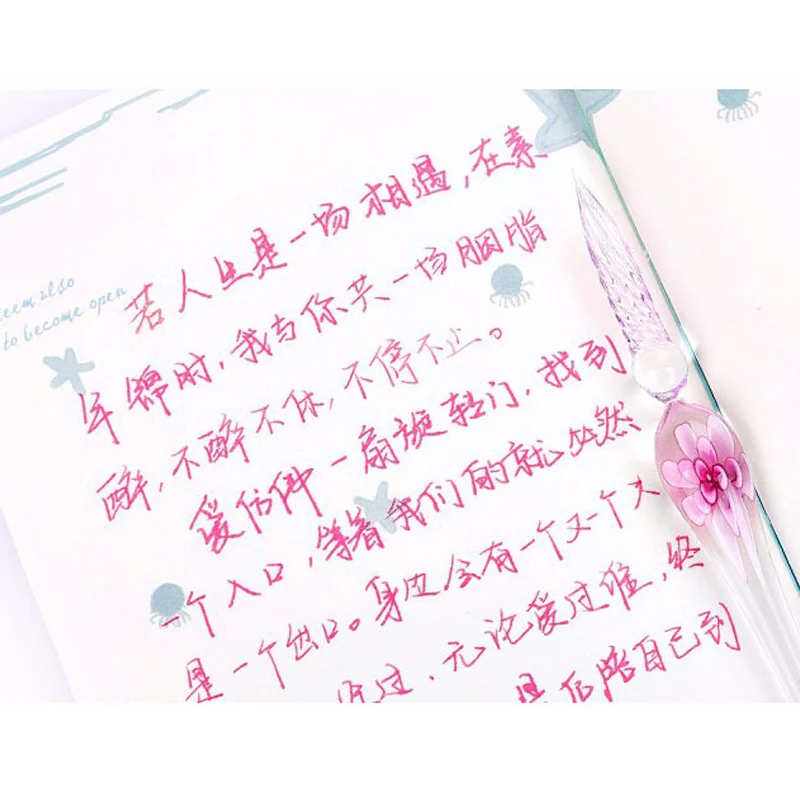 eem also
to become open
若人生是一场相遇,在素
年锦时,我与你共一场胭脂
醉,不醉不休,不停不止。
爱仿佛一扇旋转门,找到
一个入口,等着我们的就必然
是一个出口。身边会有一个又一个人
过,无论爱过谁,终
是 陪自己到